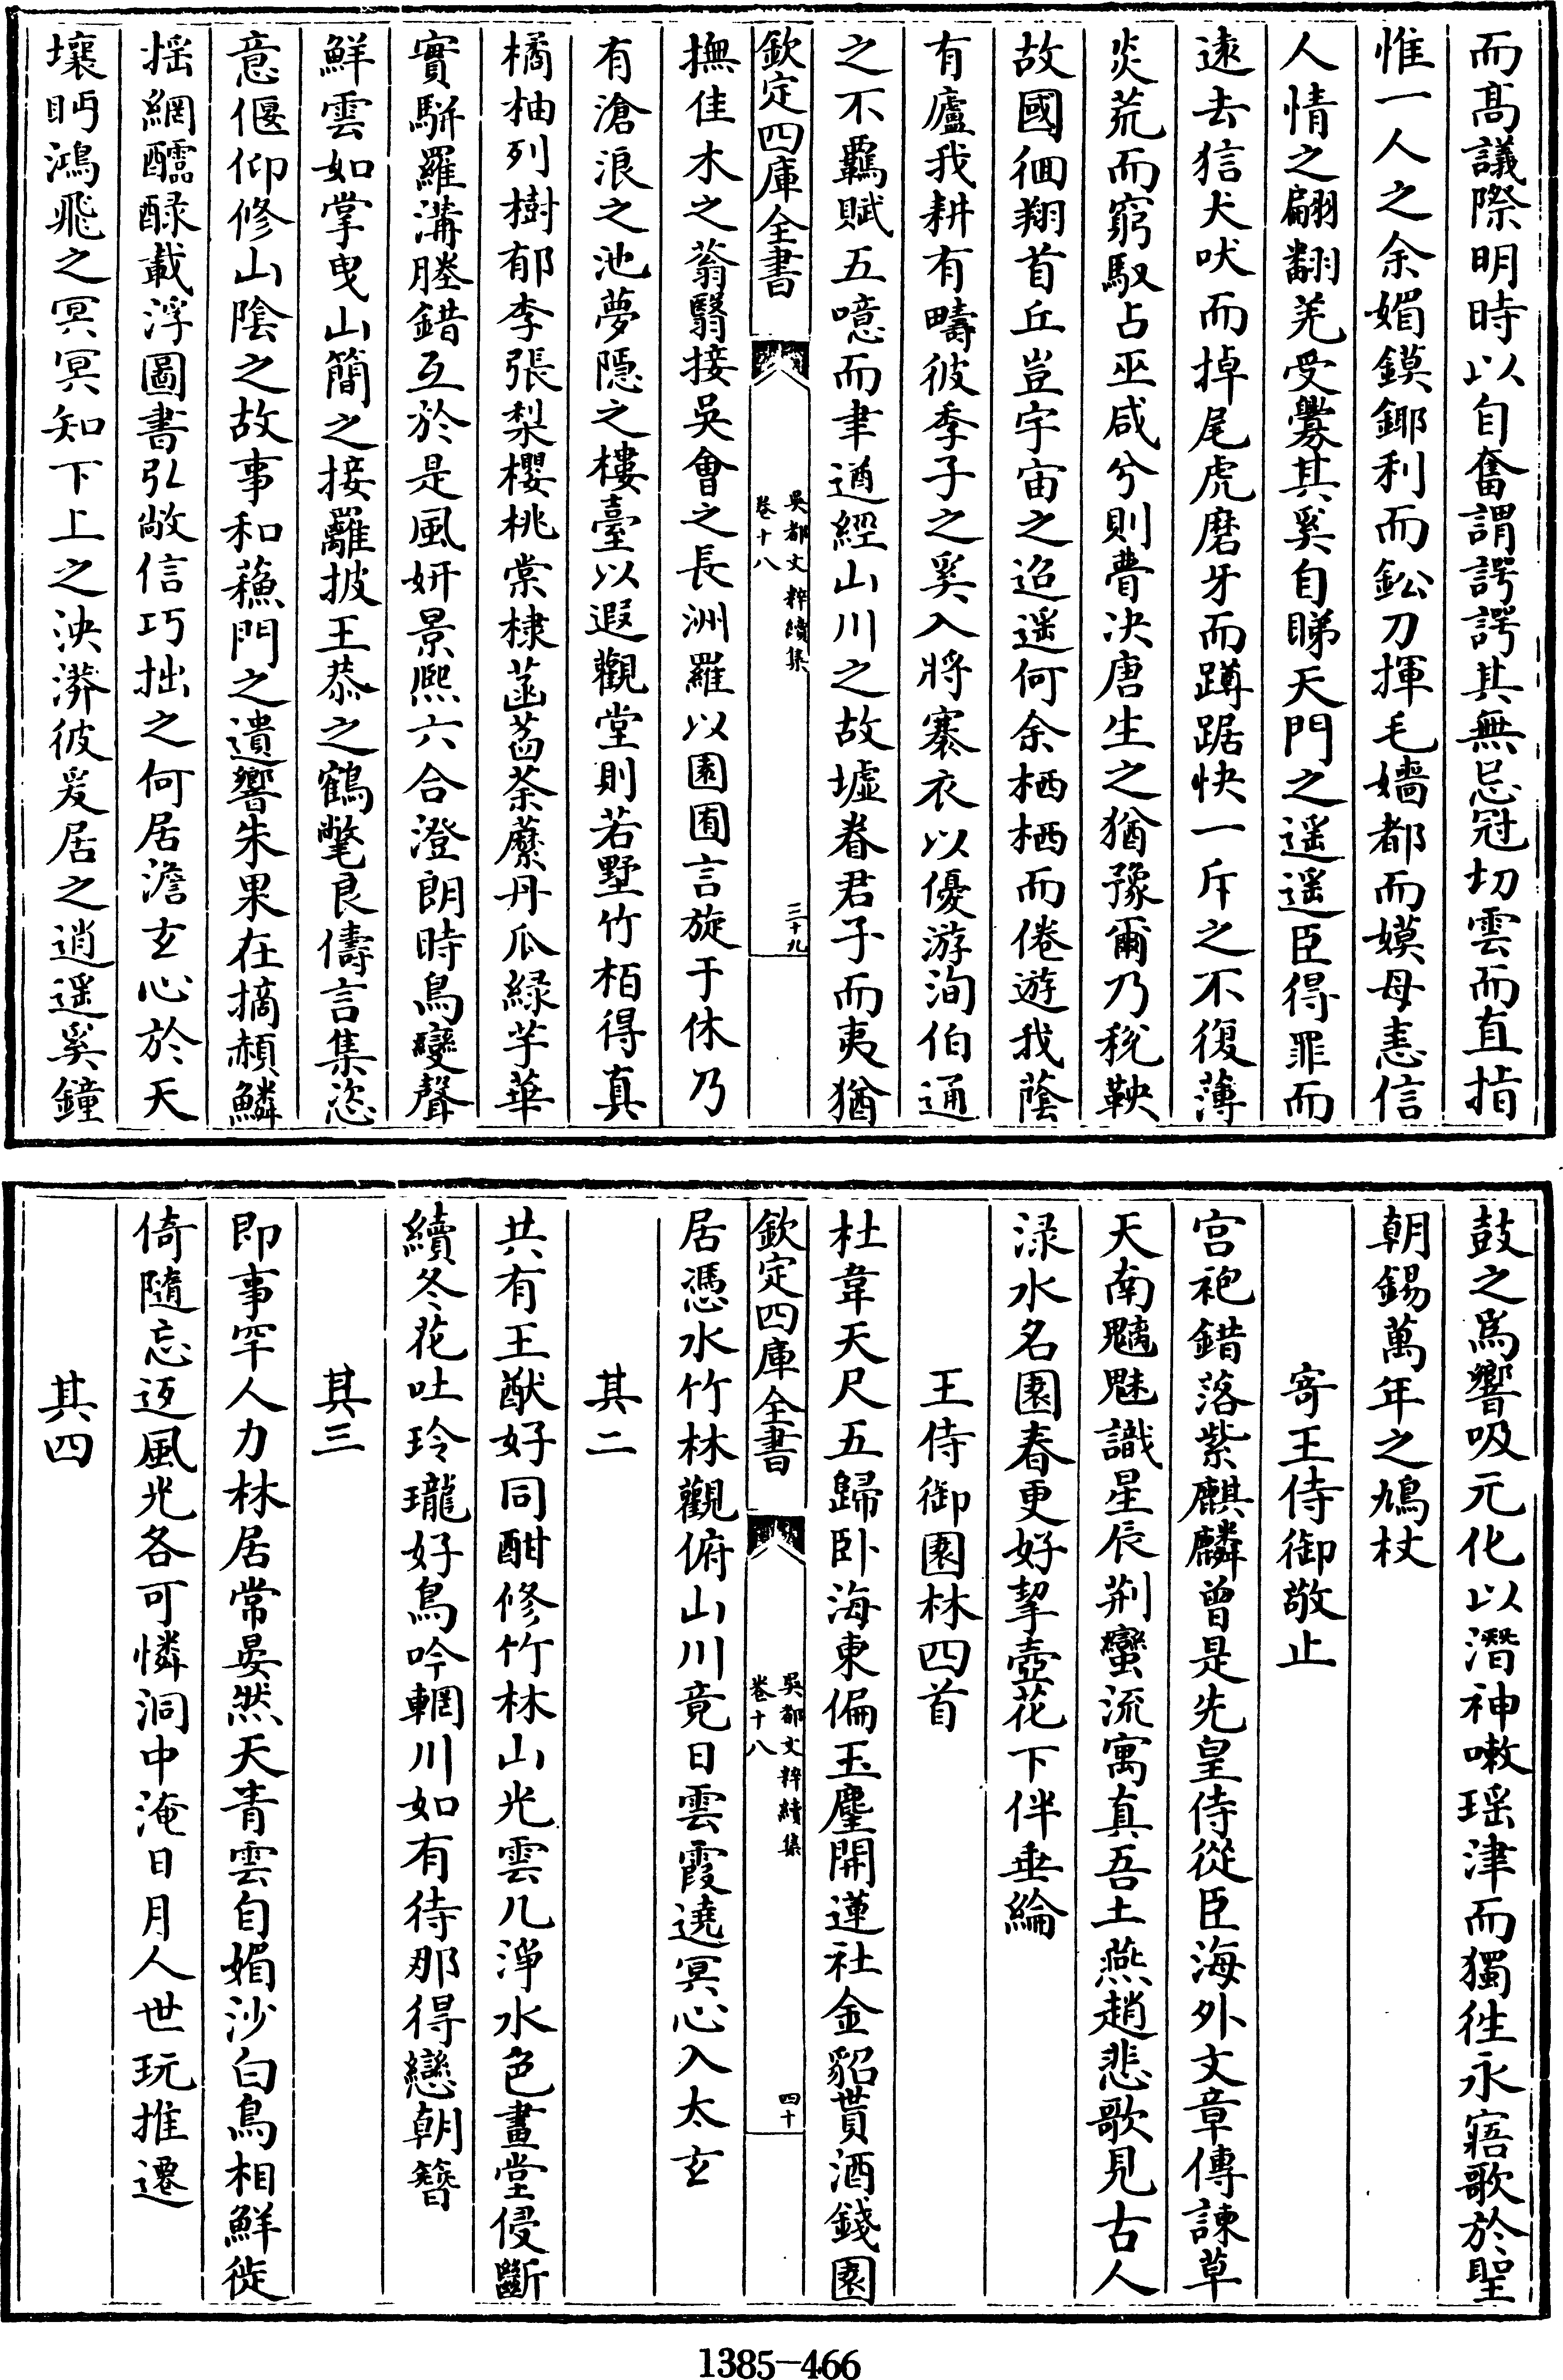 而髙議際明時以自奮謂諤諤其無忌冠切雲而直指
惟一人之余媚鏌鎁利而鈆刀揮毛嬙都而嫫母恚信
人情之翩翻羌受㸑其奚自睇天門之遥遥臣得罪而
逺去狺犬吠而掉尾虎磨牙而蹲踞快一斥之不復薄
炎荒而窮馭占巫咸兮則費决唐生之猶豫爾乃稅鞅
故國徊翔首丘豈宇宙之迢遥何余栖栖而倦遊我蔭
有廬我耕有疇彼季子之奚入將褰衣以優游洵伯通
之不羈賦五噫而聿遒經山川之故墟眷君子而夷猶
欽定四庫全書
吳都文粹續集
卷十八
三十九
撫佳木之蓊翳接吳會之長洲羅以園囿言旋于休乃
有滄浪之池夢隱之樓臺以遐觀堂則若墅竹栢得真
橘柚列樹郁李張梨櫻桃棠棣菡萏荼蘪丹瓜緑芋華
實駢羅溝塍錯互於是風妍景熈六合澄朗時鳥變聲
鮮雲如掌曳山簡之接䍦披王恭之鶴氅良儔言集恣
意偃仰修山隂之故事和蘓門之遺響朱果在摘頳鱗
揺網醽醁載浮圖書弘敞信巧拙之何居澹玄心於天
壤眄鴻飛之冥冥知下上之泱漭彼爰居之逍遥奚鐘
鼓之為響吸元化以潛神嗽瑶津而獨徃永寤歌於聖
朝錫萬年之鳩杖
寄王侍御敬止
宫袍錯落紫麒麟曾是先皇侍從臣海外文章傳諫草
天南魑魅識星辰荆蠻流寓真吾土燕趙悲歌見古人
渌水名園春更好挈壺花下伴垂綸
王侍御園林四首
杜韋天尺五歸卧海東偏玉麈開蓮社金貂貰酒錢園
欽定四庫全書
吳都文粹續集
卷十八
四十
居憑水竹林觀俯山川竟日雲霞遶冥心入太玄
其二
共有王猷好同酣修竹林山光雲几淨水色畫堂侵斷
續冬花吐玲瓏好鳥吟輞川如有待那得戀朝簪
其三
即事罕人力林居常晏然天青雲自媚沙白鳥相鮮徙
倚隨忘返風光各可憐洞中淹日月人世玩推遷
其四
1385—466